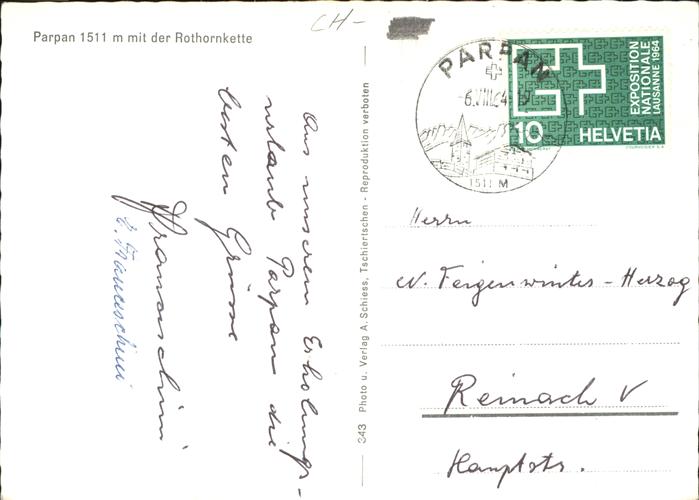 Parpan 1511 m mit der Rothornkette
CH-
Aus unserem Erholungs-
urlaub Parpan die
besten Grüsse
Franceschini
C. Franceschini
243 Photo u. Verlag A. Schiess, Tschiertschen - Reproduktion verboten
PARPAN
-6.VIII.64-
1511 M
EXPOSITION
NATIONALE
LAUSANNE 1964
10 HELVETIA
Herrn
W. Feigenwinter-Herzog
Reinach
Hauptstr.